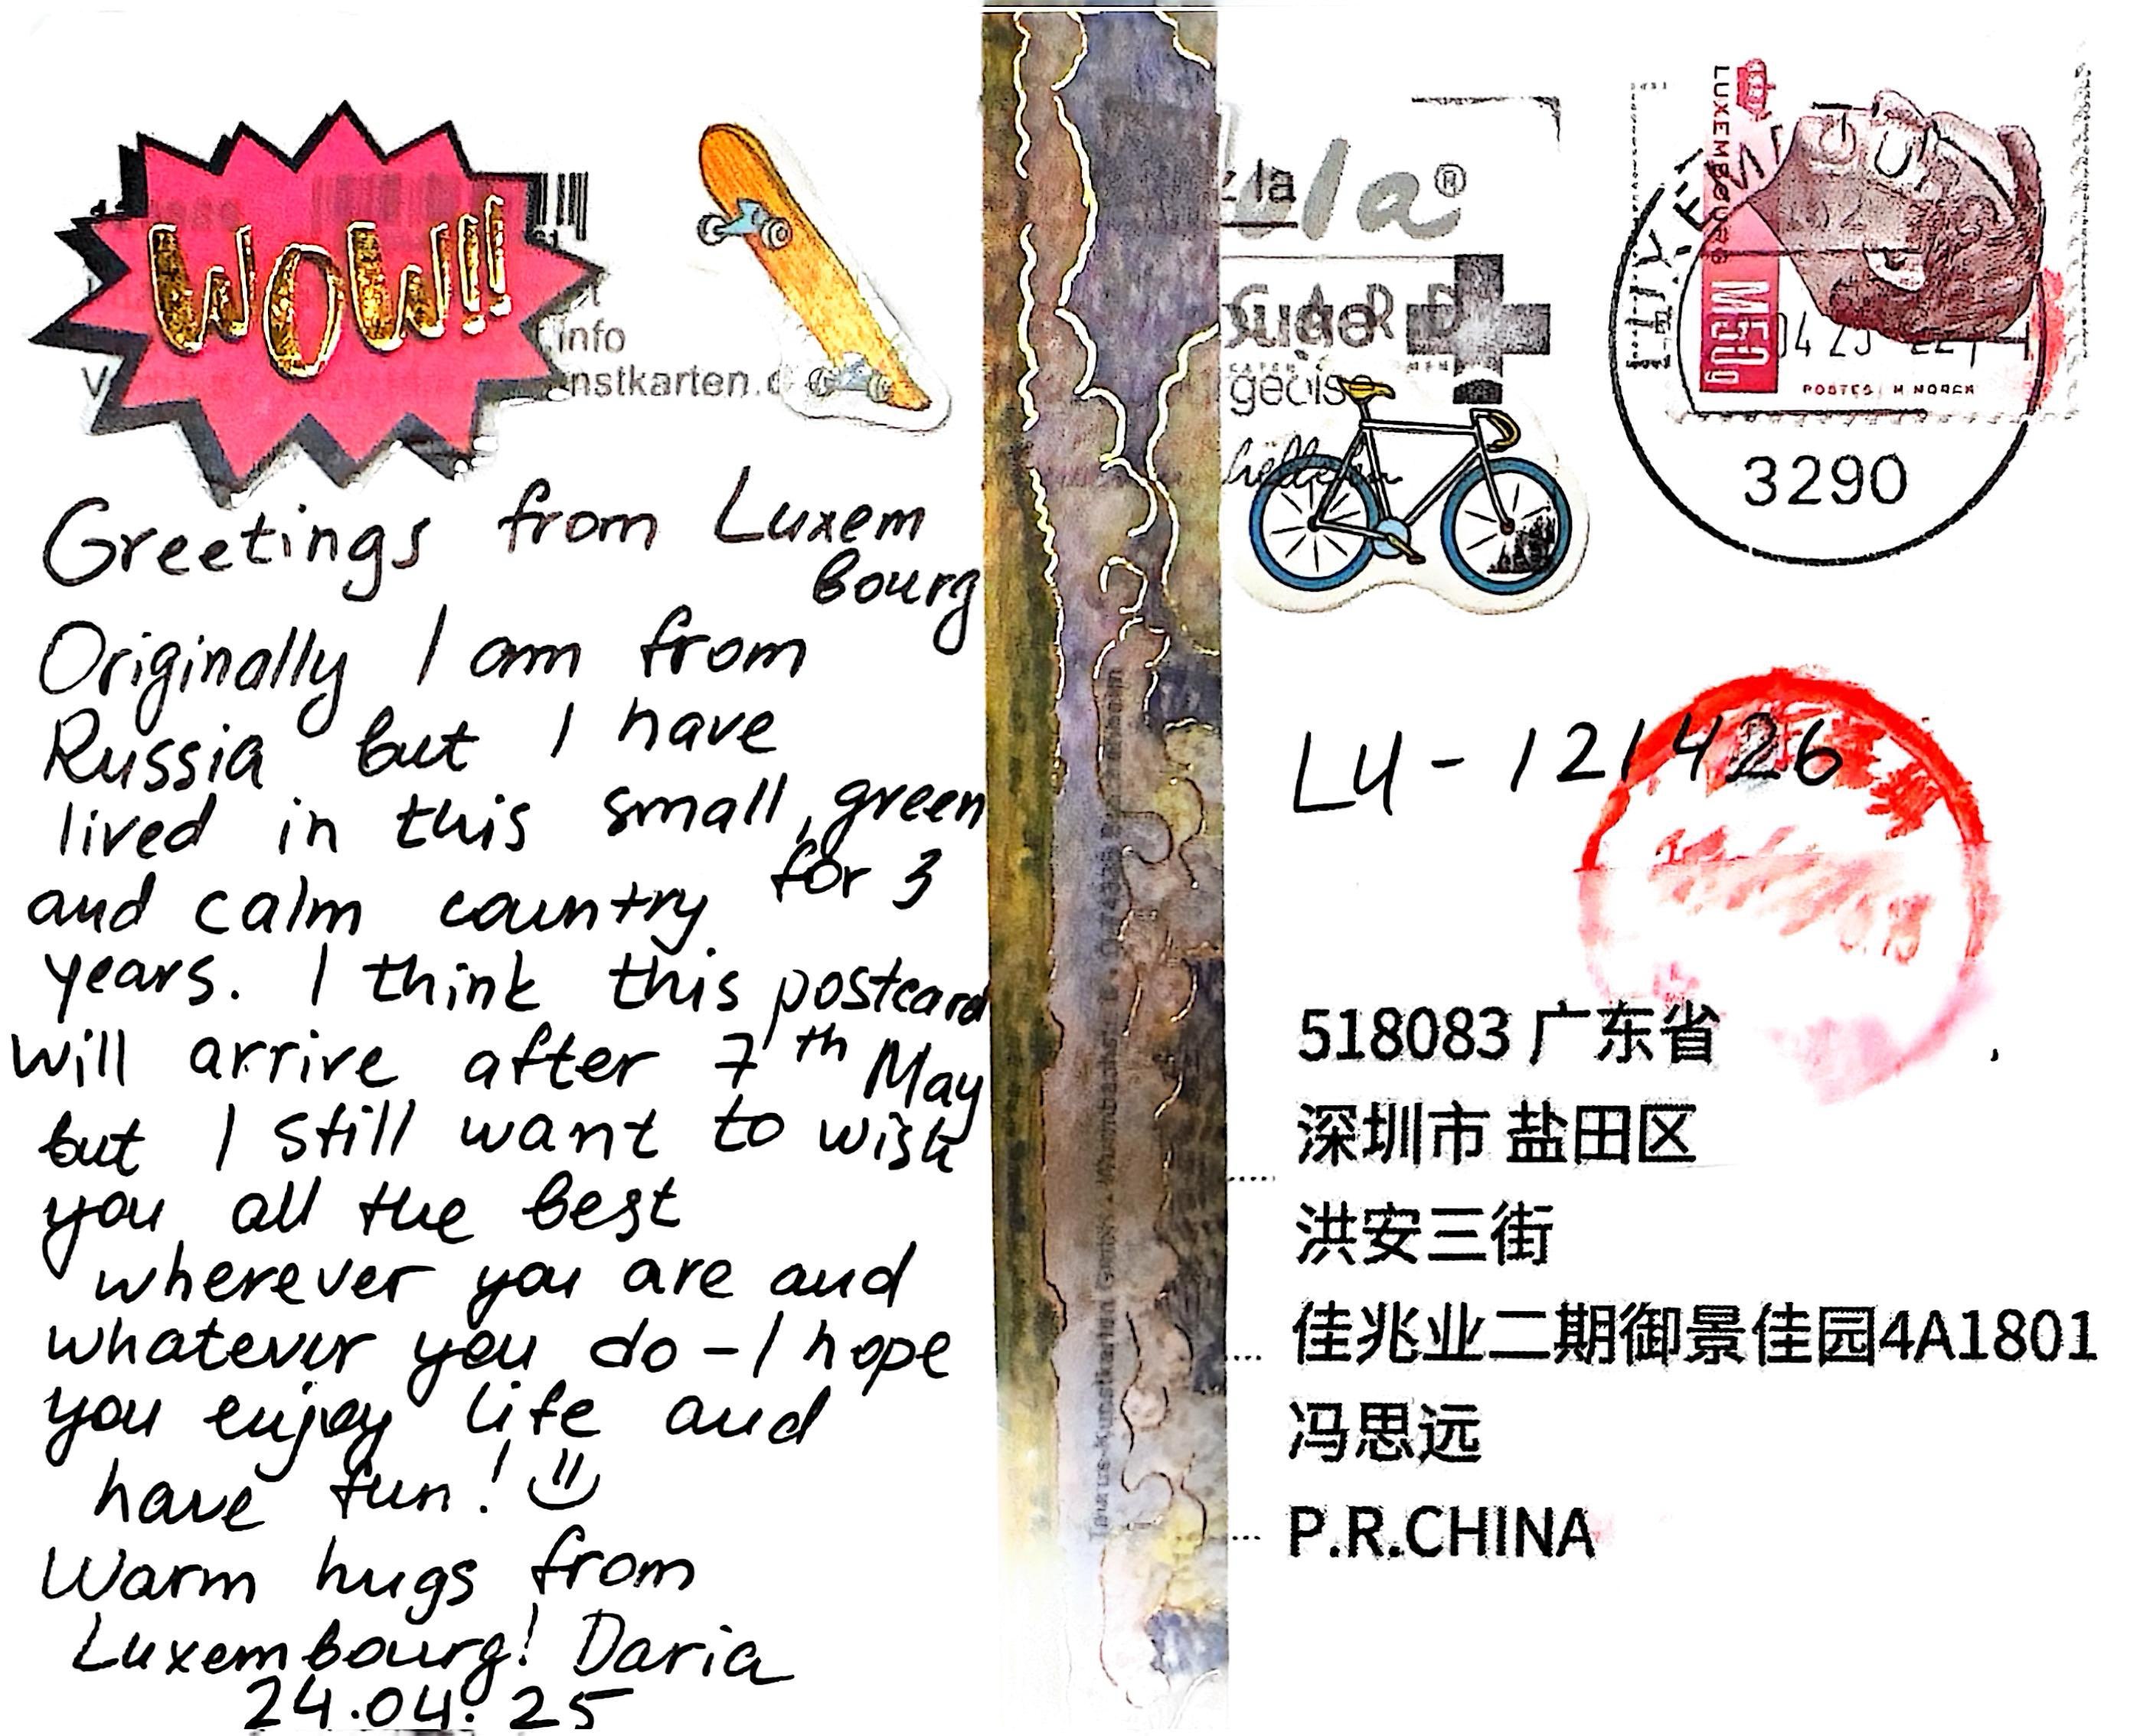 WOW!!
info
nstkarten.d
Greetings from Luxem
bourg
Originally I am from
Russia but I have
lived in this small, green
and calm country for 3
years. I think this postcard
will arrive after 7th May
but I still want to wish
you all the best
wherever you are and
whatever you do - I hope
you enjoy life and
have fun!
Warm hugs from
Luxembourg! Daria
24.04.25
la®
geois
LUXEMBOURG
M50g
POSTES
3290
LU-121426
518083 广东省
深圳市 盐田区
洪安三街
佳兆业二期御景佳园4A1801
冯思远
P.R.CHINA